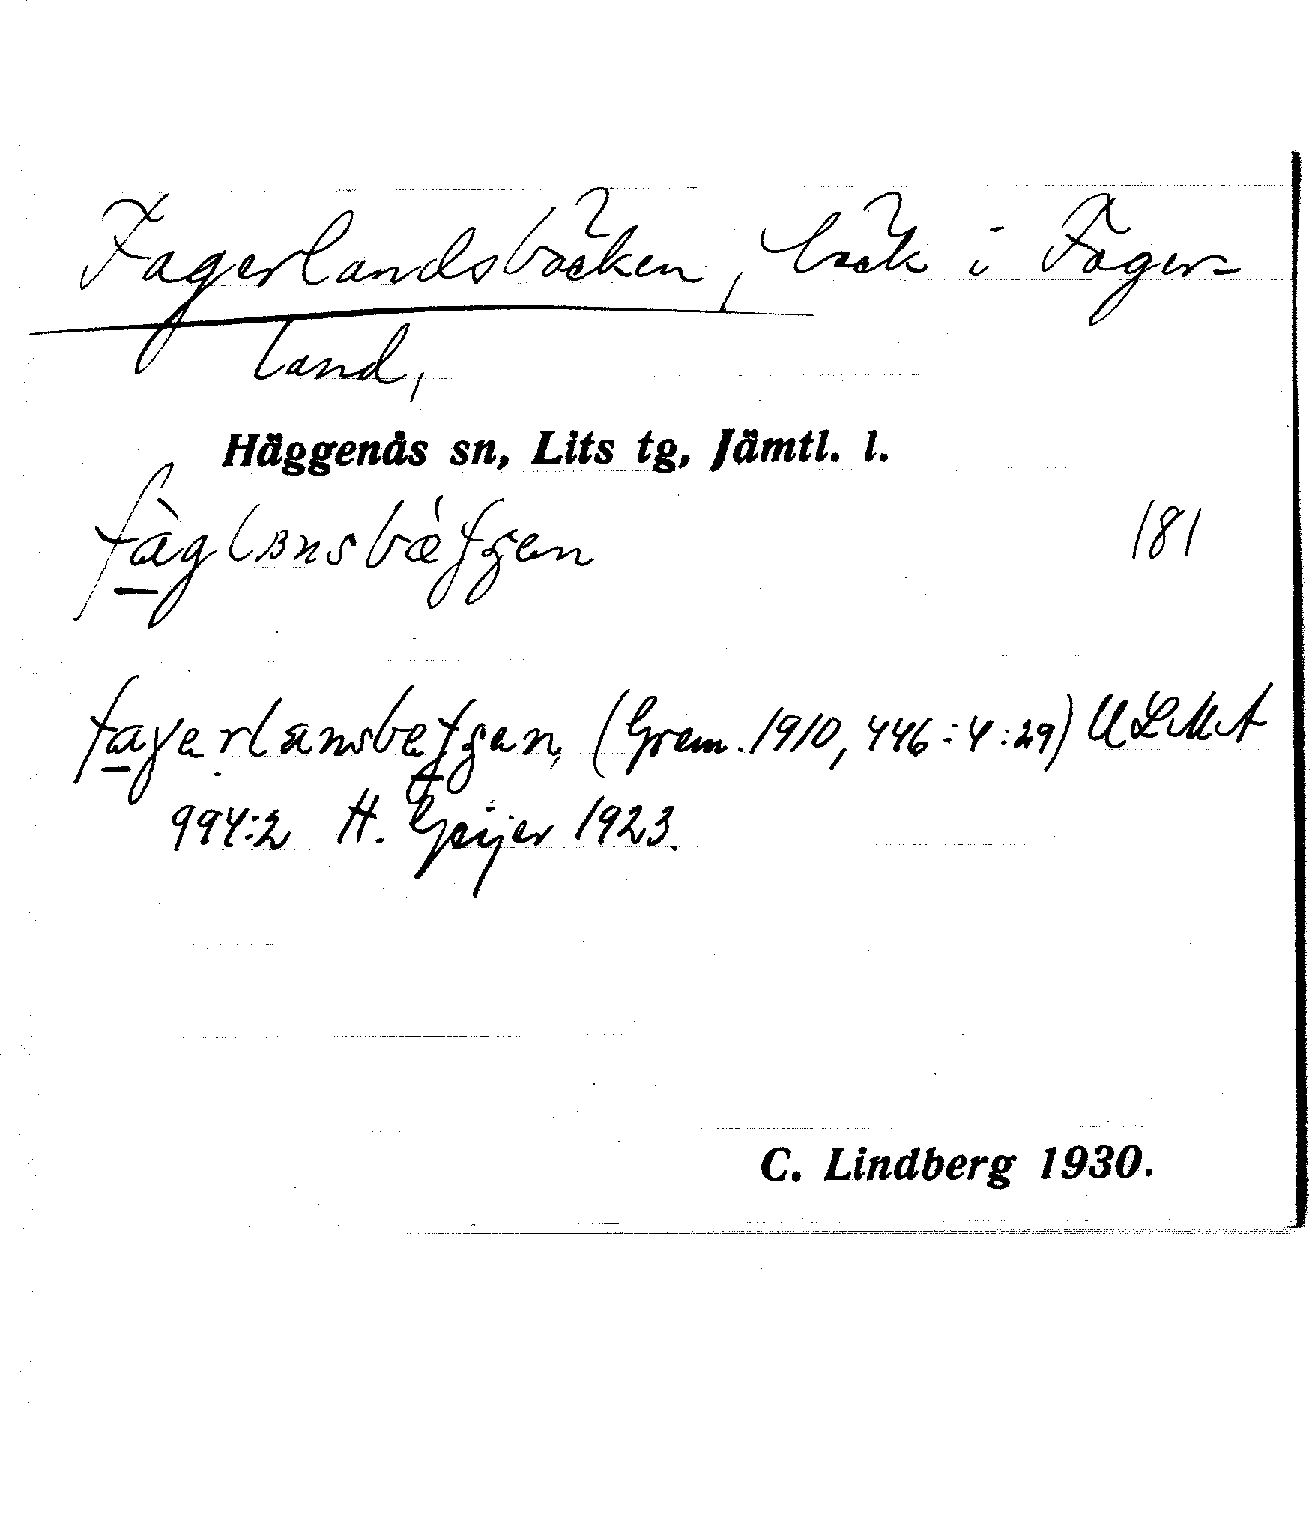 Fagerlandsbäcken, bäck i Fager-
land,
Häggenås sn, Lits tg, Jämtl. l.
181
(Grem. 1910, 446:4:29) ULMA
994:2 H. Geijer 1923.
C. Lindberg 1930.